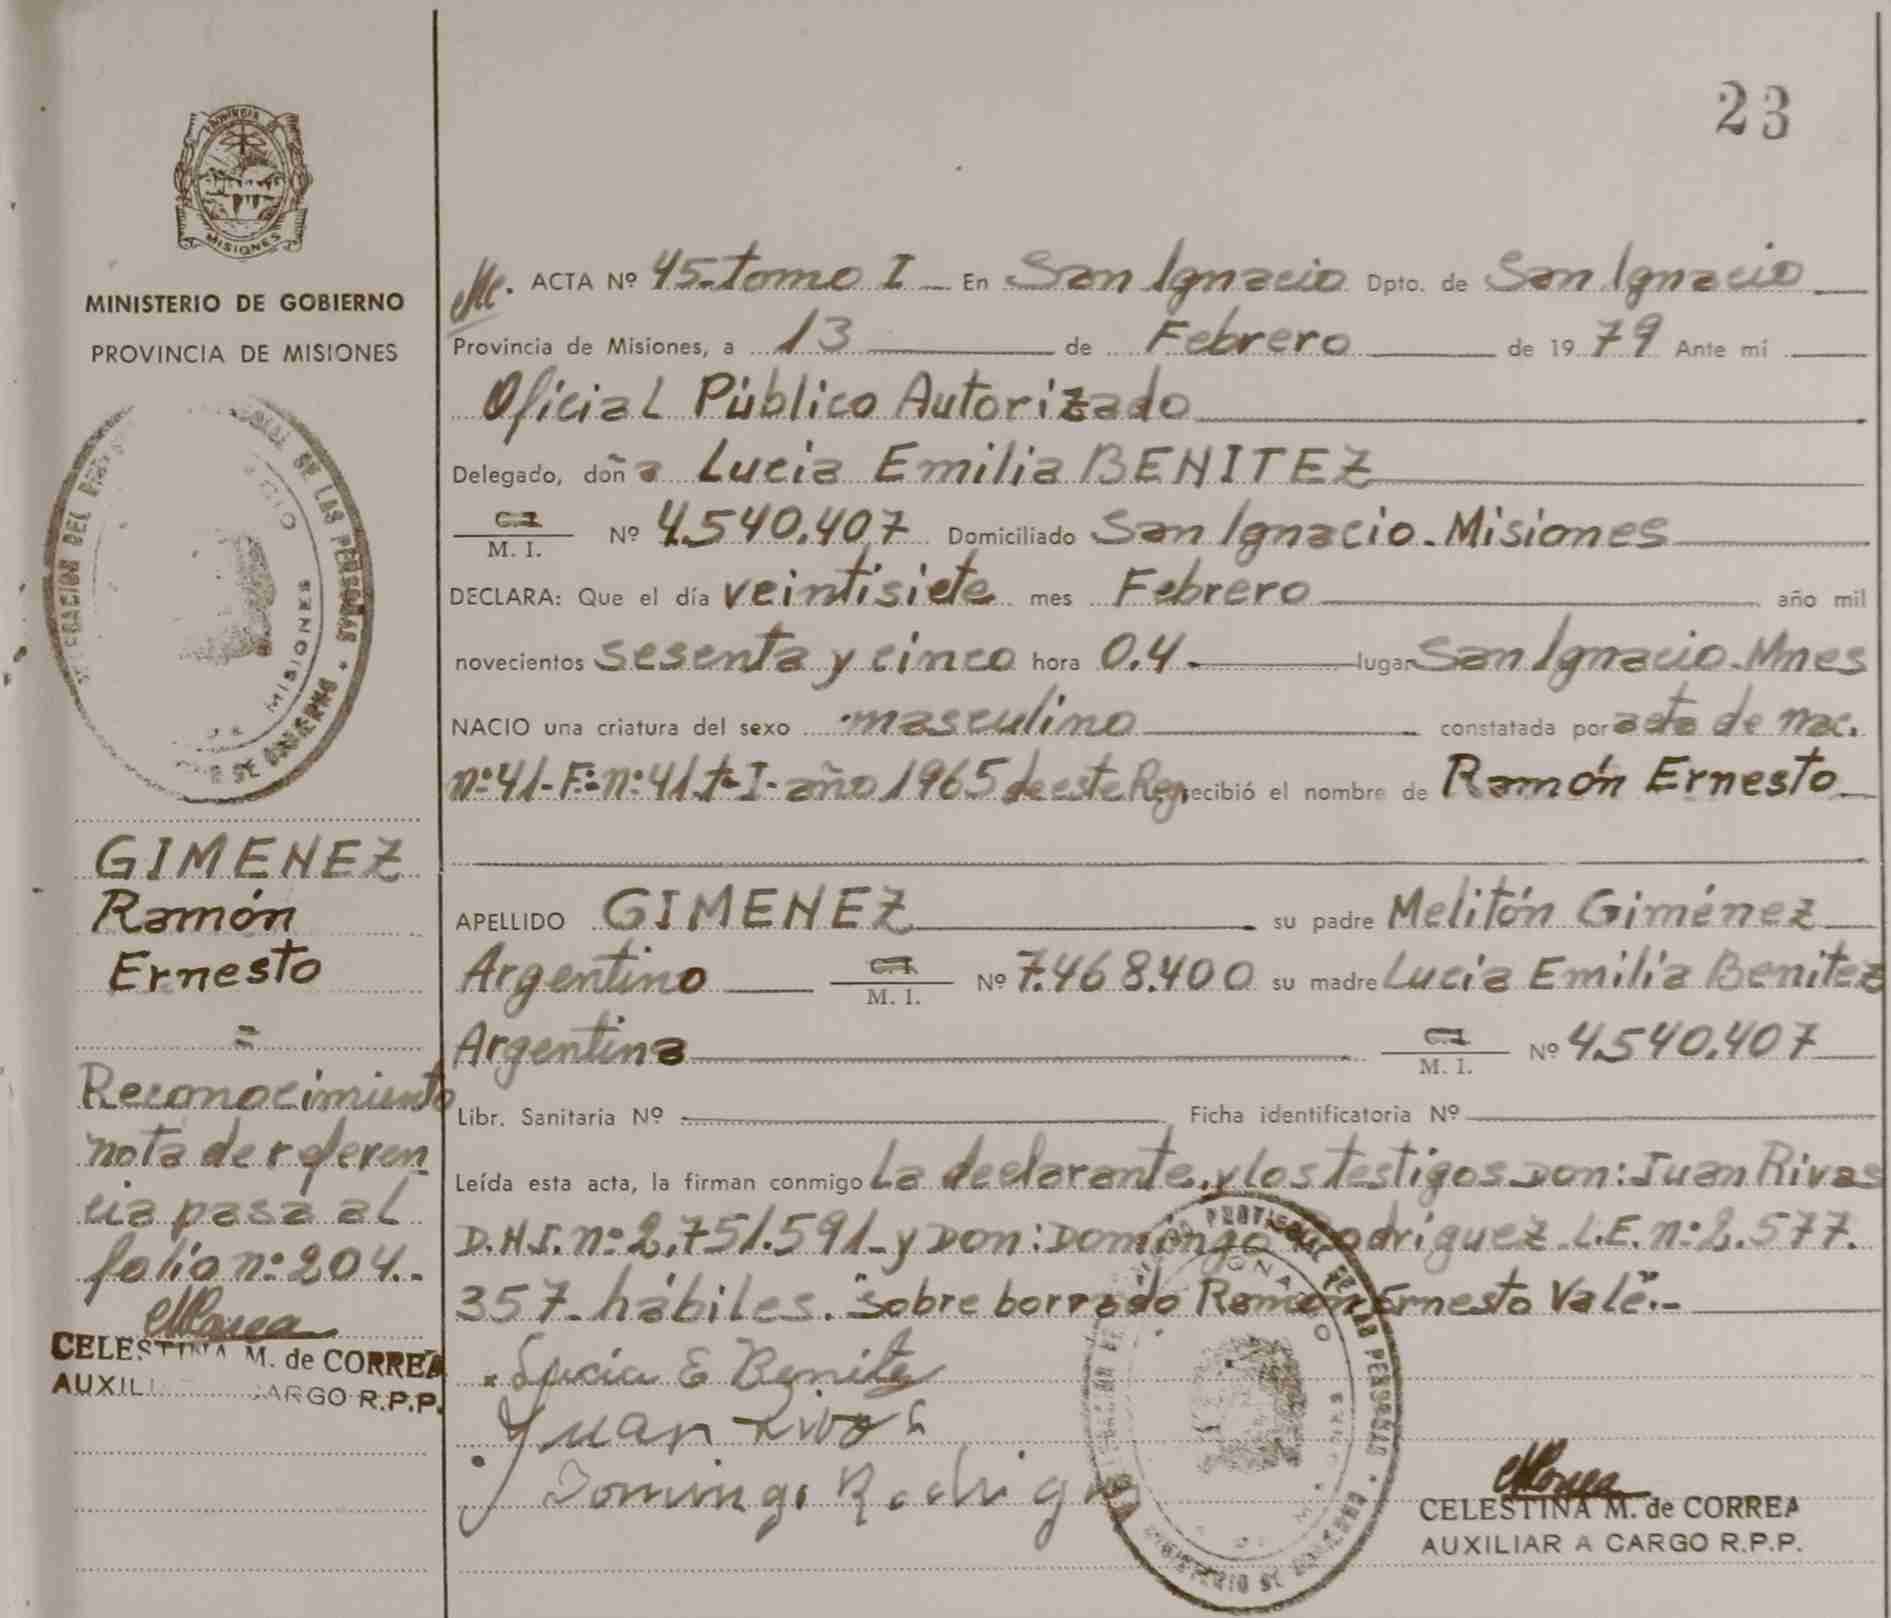 23
PROVINCIA DE
MISIONES
MINISTERIO DE GOBIERNO
PROVINCIA DE MISIONES
GIMENEZ
Ramón
Ernesto
=
Reconocimiento
nota de referen
cia pasa al
folio n:204.-
CELESTINA M. de CORREA
AUXIL ARGO R.P.P.
ACTA Nº 45-tomo I En San Ignacio Dpto. de San Ignacio
Provincia de Misiones, a 13 de Febrero de 1979 Ante mí
Oficial Público Autorizado
Delegado, doña Lucia Emilia BENITEZ
C.I. M. I. Nº 4.540.407 Domiciliado San Ignacio-Misiones
DECLARA: Que el día veintisiete mes Febrero año mil
novecientos sesenta y cinco hora 0.4- lugar San Ignacio-Mnes
NACIO una criatura del sexo masculino constatada por acta de nac.
n:41-F:n:41.t-I-año 1965 de este Reg recibió el nombre de Ramón Ernesto
APELLIDO GIMENEZ su padre Melitón Giménez
Argentino C.I. M. I. Nº 7.468.400 su madre Lucia Emilia Benitez
Argentina C.I. M. I. Nº 4.540.407
Libr. Sanitaria Nº Ficha identificatoria Nº
Leída esta acta, la firman conmigo La declarante, y los testigos Don: Juan Rivas
n:2.751.591-y Don: Domingo Rodriguez L.E. n:2.577.
357-hábiles. "Sobre borrado Ramón Ernesto Vale".-
Lucia E Benitez
Juan Rivas
Domingo Rodrig
MISIONES
DE LAS PERSONAS
CELESTINA M. de CORREA
AUXILIAR A CARGO R.P.P.